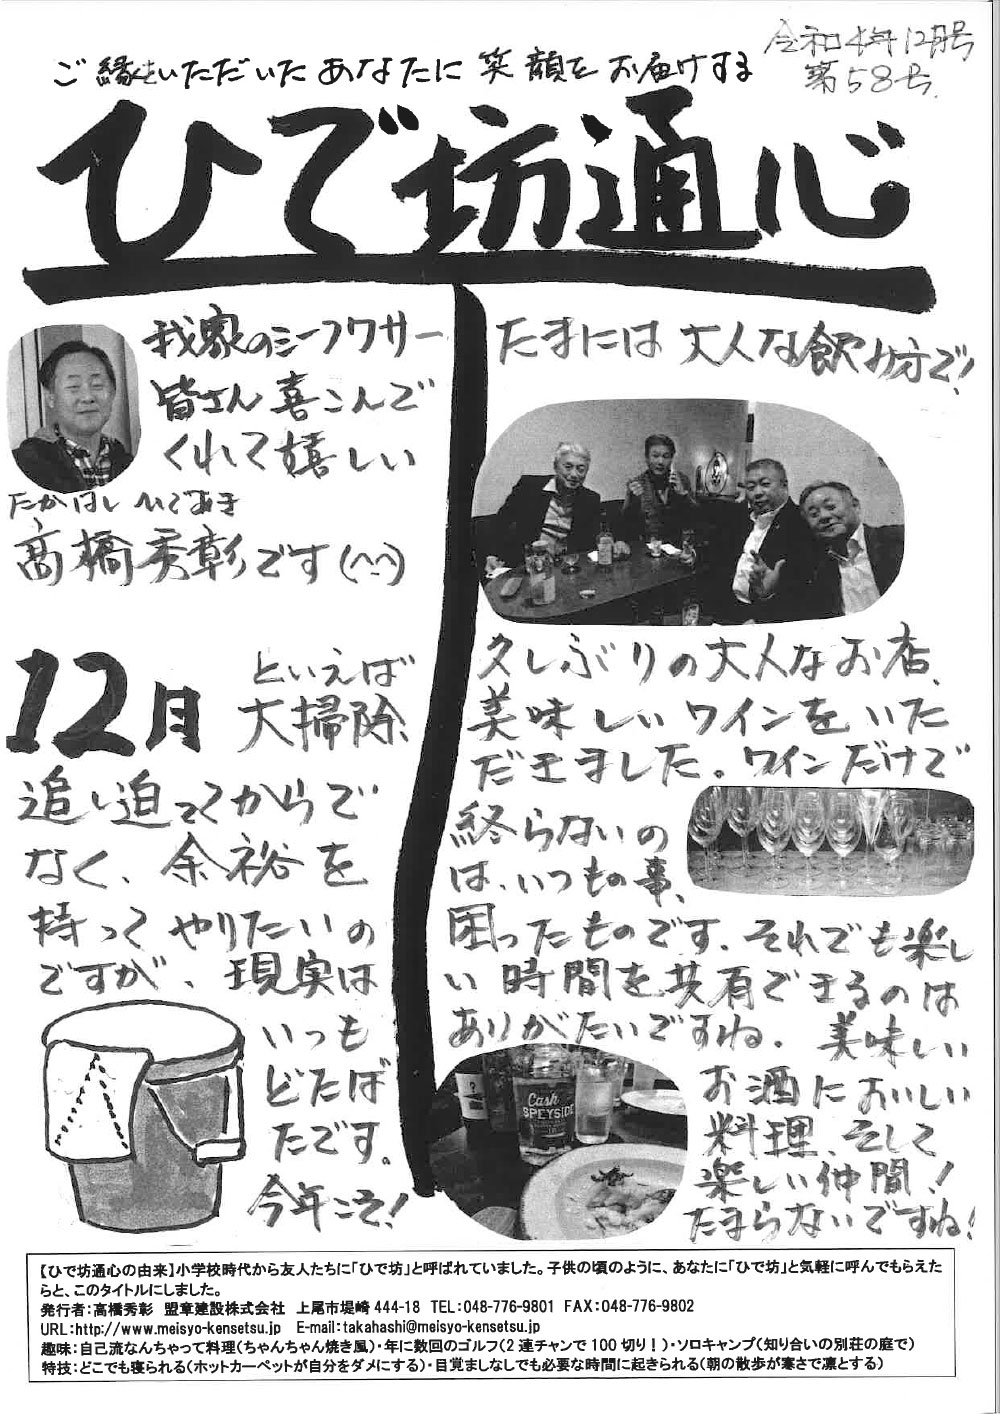 令和4年12月号
第58号
ご縁をいただいたあなたに笑顔をお届けする
ひで坊通心
我家のシークワサー
皆さん喜こんで
くれて嬉しい
たかはし ひであき
髙橋秀彰です(^-^)
12月
といえば
大掃除、
追い迫ってからで
なく、余裕を
持ってやりたいの
ですが、現実は
いつも
どたば
たです。
今年こそ!
たまには大人な飲み方で!
久しぶりの大人なお店、
美味しいワインをいた
だきました。ワインだけで
終らないの
は、いつもの事、
困ったものです、それでも楽し
い時間を共有できるのは
ありがたいですね、美味しい
お酒においしい
料理、そして
楽しい仲間!
たまらないですね!
Cask
SPEYSIDE
【ひで坊通心の由来】小学校時代から友人たちに「ひで坊」と呼ばれていました。子供の頃のように、あなたに「ひで坊」と気軽に呼んでもらえた
らと、このタイトルにしました。
発行者:高橋秀彰 盟章建設株式会社 上尾市堤崎444-18 TEL:048-776-9801 FAX:048-776-9802
URL:http://www.meisyo-kensetsu.jp E-mail:takahashi@meisyo-kensetsu.jp
趣味:自己流なんちゃって料理(ちゃんちゃん焼き風)・年に数回のゴルフ(2連チャンで100切り!)・ソロキャンプ(知り合いの別荘の庭で)
特技:どこでも寝られる(ホットカーペットが自分をダメにする)・目覚ましなしでも必要な時間に起きられる(朝の散歩が寒さで凛とする)